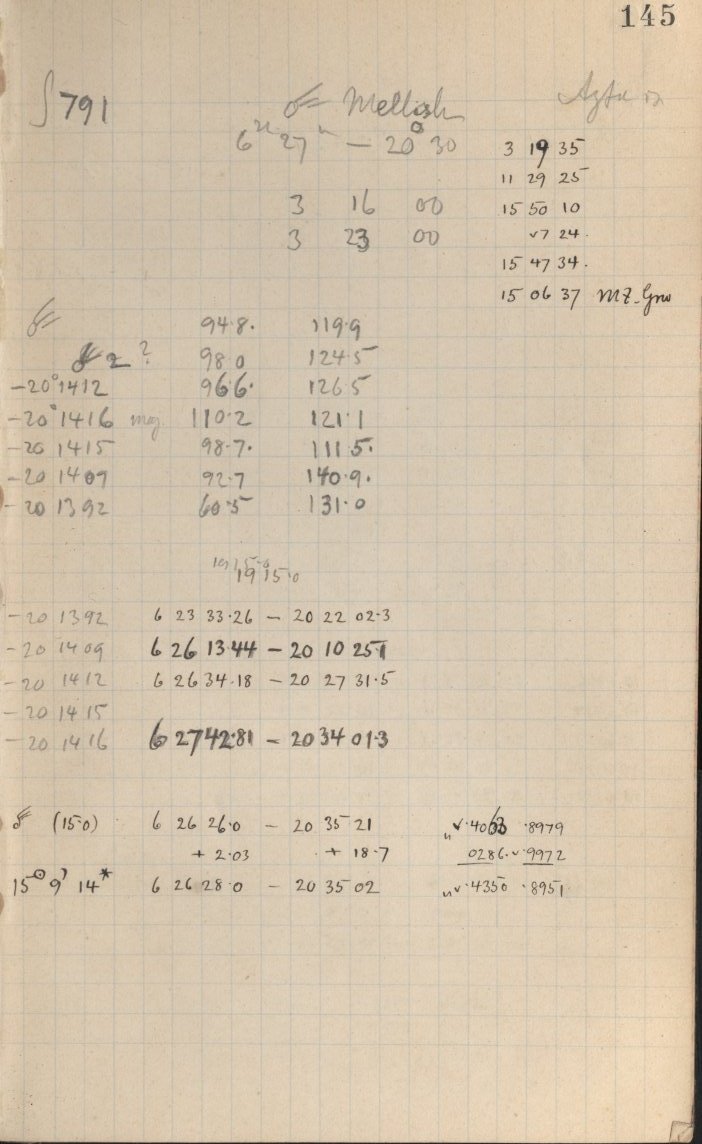 145
∫791 ☄ Mellish
6ʰ 27ᵐ – 20° 30 3 19 35
11 29 25
3 16 00 15 50 10
3 23 00 √7 24.
15 47 34.
15 06 37 MZ. Grw
☄ 94.8. 119.9
☄ 2? 98.0 124.5
-20°1412 96.6. 126.5
-20°1416 mg. 110.2 121.1
-20 1415 98.7. 111.5.
-20 1409 92.7 140.9.
-20 1392 60.5 131.0
1915.0
1915.0
-20 1392 6 23 33.26 – 20 22 02.3
-20 1409 6 26 13.44 – 20 10 25.1
-20 1412 6 26 34.18 – 20 27 31.5
-20 1415
-20 1416 6 27 42.81 – 20 34 01.3
☄ (15.0) 6 26 26.0 – 20 35 21 n √.4063 .8979
+ 2.03 + 18.7 0286.√.9972
15 9 14* 6 26 28.0 – 20 35 02 n √.4350 .8951